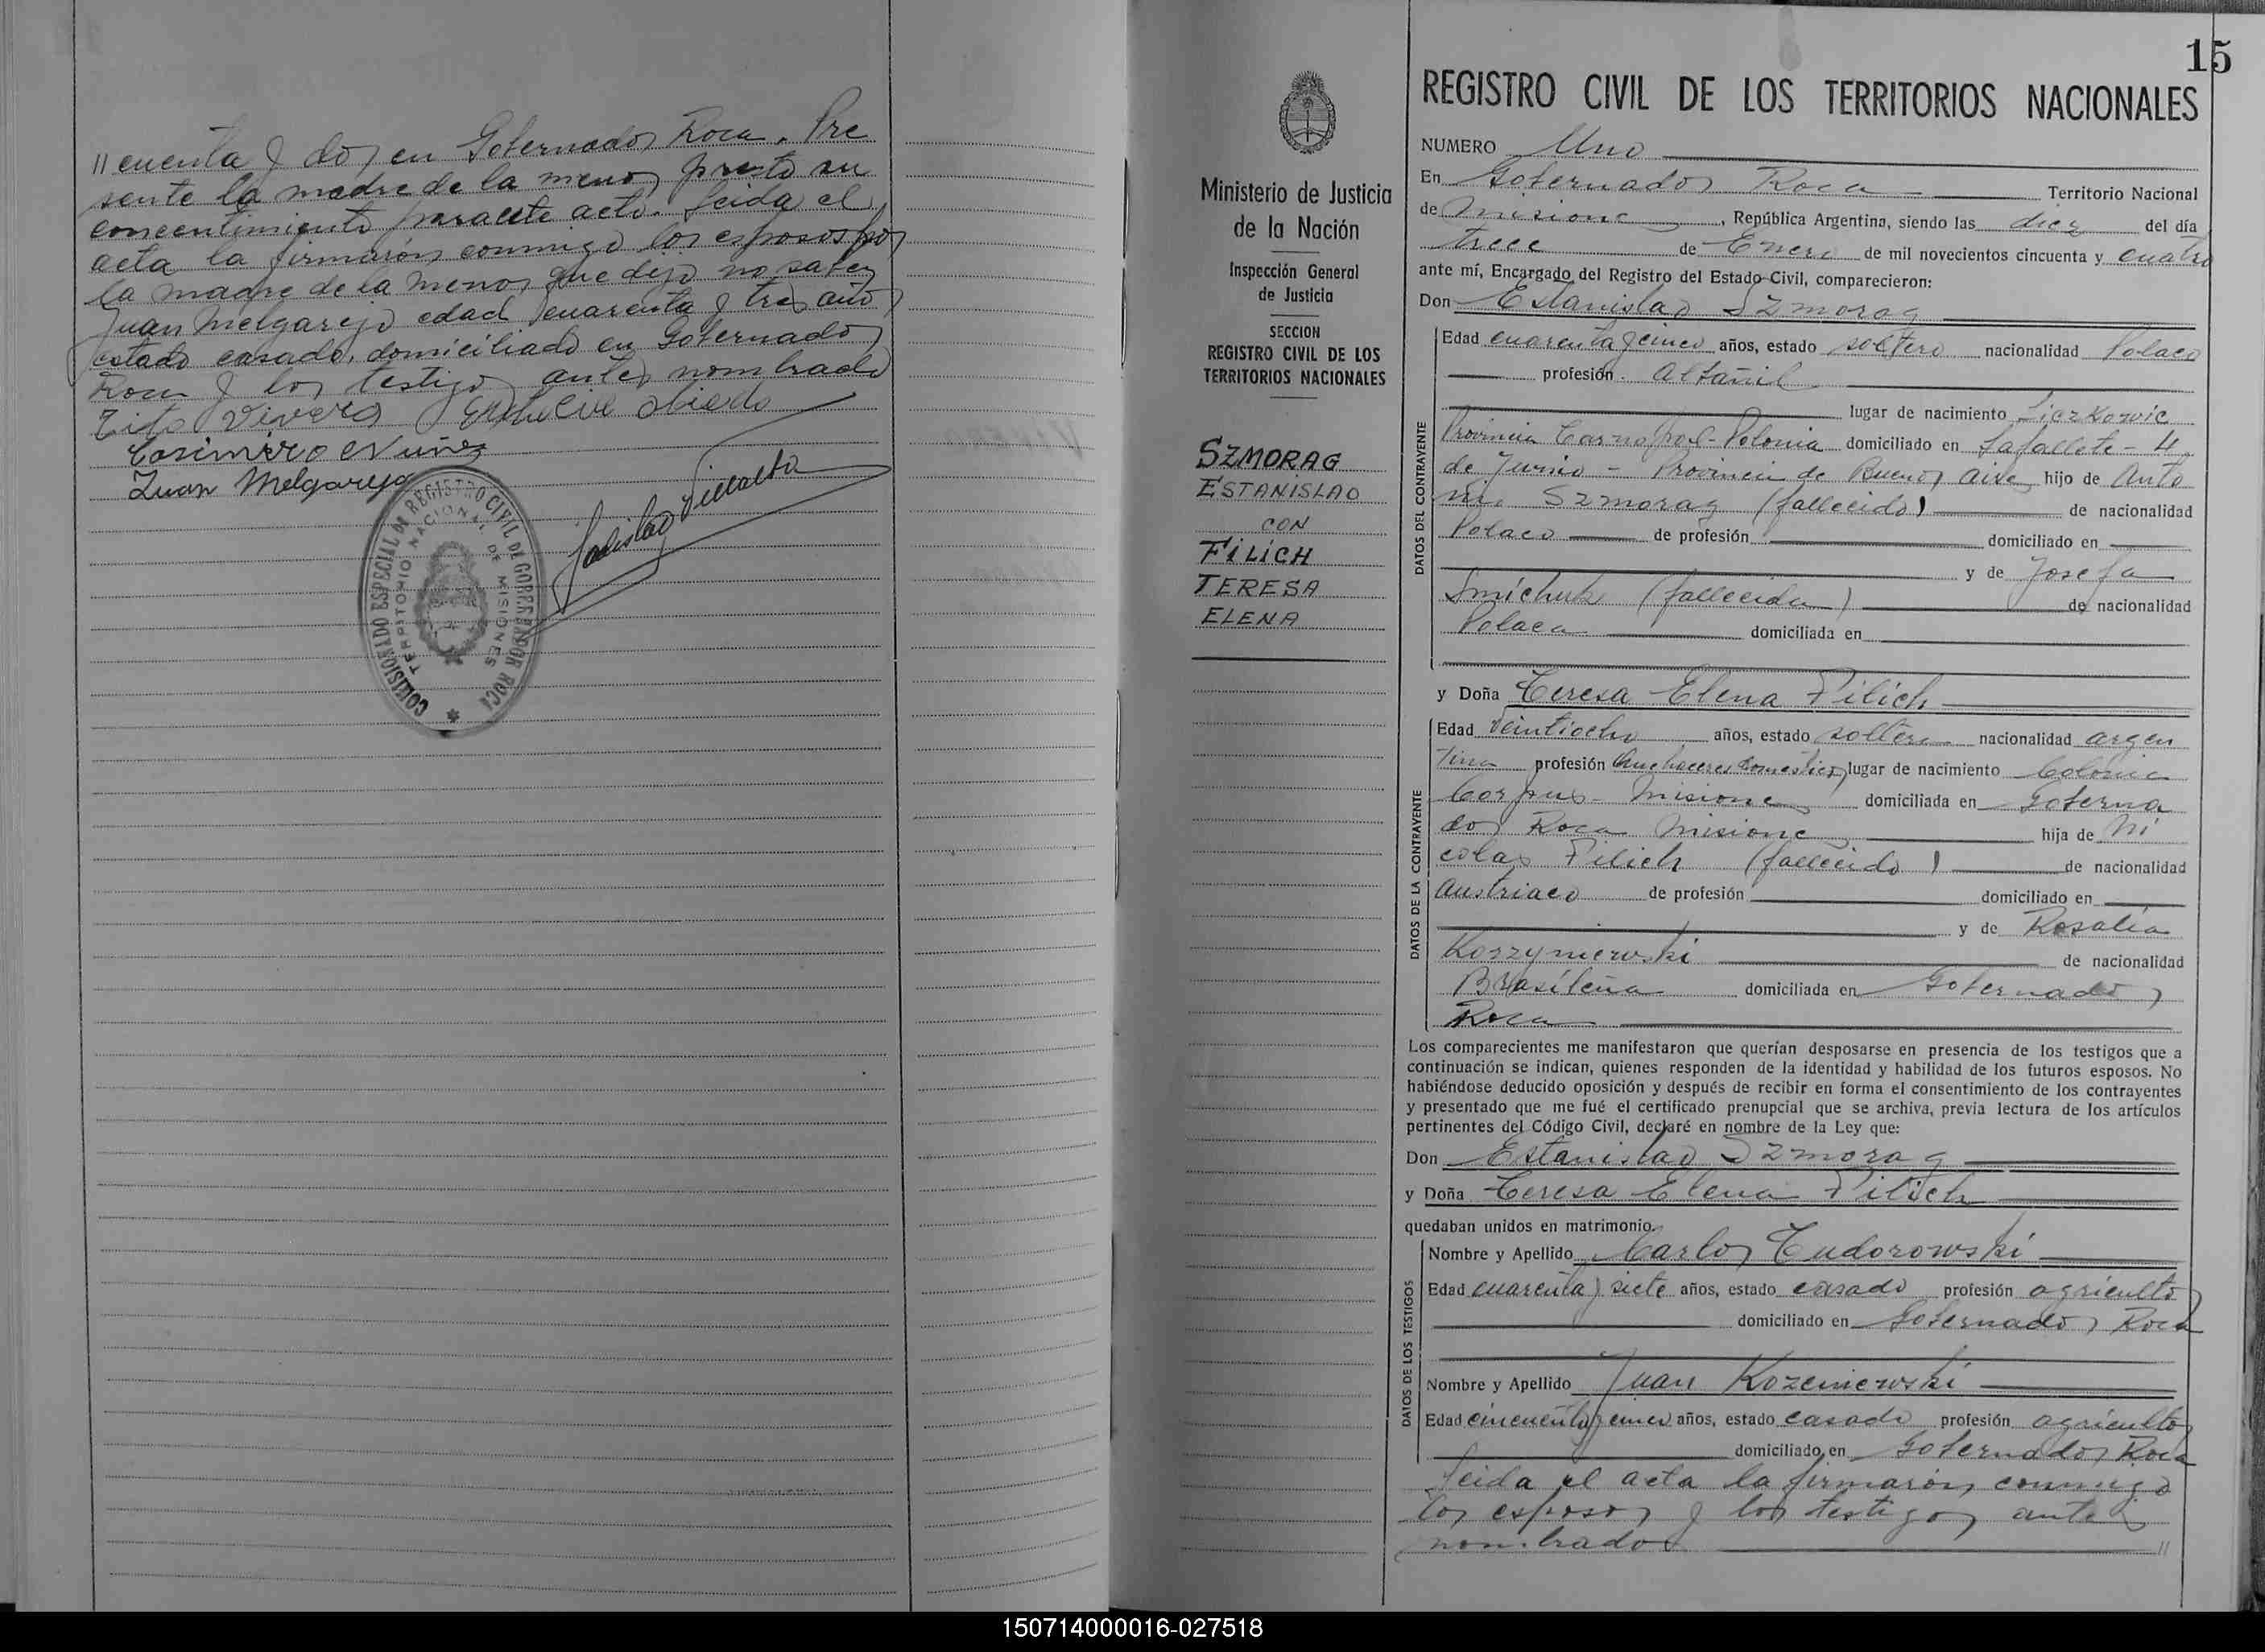 // cuenta y dos en Gobernador Roca. Pre
sente la madre de la menor presto su
concentimiento para este acto. Leida el
acta la firmaron conmigo los esposos por
la madre de la menor que dijo no saber
Juan Melgarejo edad cuarenta y tres años
estado casado, domiciliado en Gobernador
Roca y los testigos antes nombrado
Tito Vivero
Casimiro Nuñez
Juan Melgarejo
Ladislao Villalba
COMISIONADO ESPECIAL DE REGISTRO CIVIL DE GOBERNADOR ROCA
TERRITORIO NACIONAL DE MISIONES
15
Ministerio de Justicia
de la Nación
Inspección General
de Justicia
SECCION
REGISTRO CIVIL DE LOS
TERRITORIOS NACIONALES
SZMORAG
ESTANISLAO
CON
FILICH
TERESA
ELENA
REGISTRO CIVIL DE LOS TERRITORIOS NACIONALES
NUMERO Uno
En Gobernador Roca Territorio Nacional
de Misiones, República Argentina, siendo las diez del día
trece de Enero de mil novecientos cincuenta y cuatro
ante mí, Encargado del Registro del Estado Civil, comparecieron:
Don Estanislao Szmorag
DATOS DEL CONTRAYENTE
Edad cuarenta y cinco años, estado soltero nacionalidad Polaco
profesión albañil
lugar de nacimiento
Provincia Tarnopol - Polonia domiciliado en Lafallete - 4
de Junio - Provincia de Buenos Aires hijo de Anto
nio Szmorag (fallecido) de nacionalidad
Polaco de profesión domiciliado en
y de Josefa
Smichuk (fallecida) de nacionalidad
Polaca domiciliada en
y Doña Teresa Elena Filich
DATOS DE LA CONTRAYENTE
Edad veintiocho años, estado soltera nacionalidad argen
tina profesión Quehaceres domesticos lugar de nacimiento Colonia
Corpus - Misiones domiciliada en Goberna
dor Roca Misiones hija de Ni
colas Filich (fallecido) de nacionalidad
austriaco de profesión domiciliado en
y de Rosalía
Kozzyniewski de nacionalidad
Brasileña domiciliada en Gobernador
Roca
Los comparecientes me manifestaron que querían desposarse en presencia de los testigos que a
continuación se indican, quienes responden de la identidad y habilidad de los futuros esposos. No
habiéndose deducido oposición y después de recibir en forma el consentimiento de los contrayentes
y presentado que me fué el certificado prenupcial que se archiva, previa lectura de los artículos
pertinentes del Código Civil, declaré en nombre de la Ley que:
Don Estanislao Szmorag
y Doña Teresa Elena Filich
quedaban unidos en matrimonio.
DATOS DE LOS TESTIGOS
Nombre y Apellido Carlos Tudorowski
Edad cuarenta y siete años, estado casado profesión agricultor
domiciliado en Gobernador Roca
Nombre y Apellido Juan Kozeniewski
Edad cincuenta y cinco años, estado casado profesión agricultor
domiciliado en Gobernador Roca
Leida el acta la firmaron conmigo
los esposos y los testigos antes
nombrados //
150714000016-027518